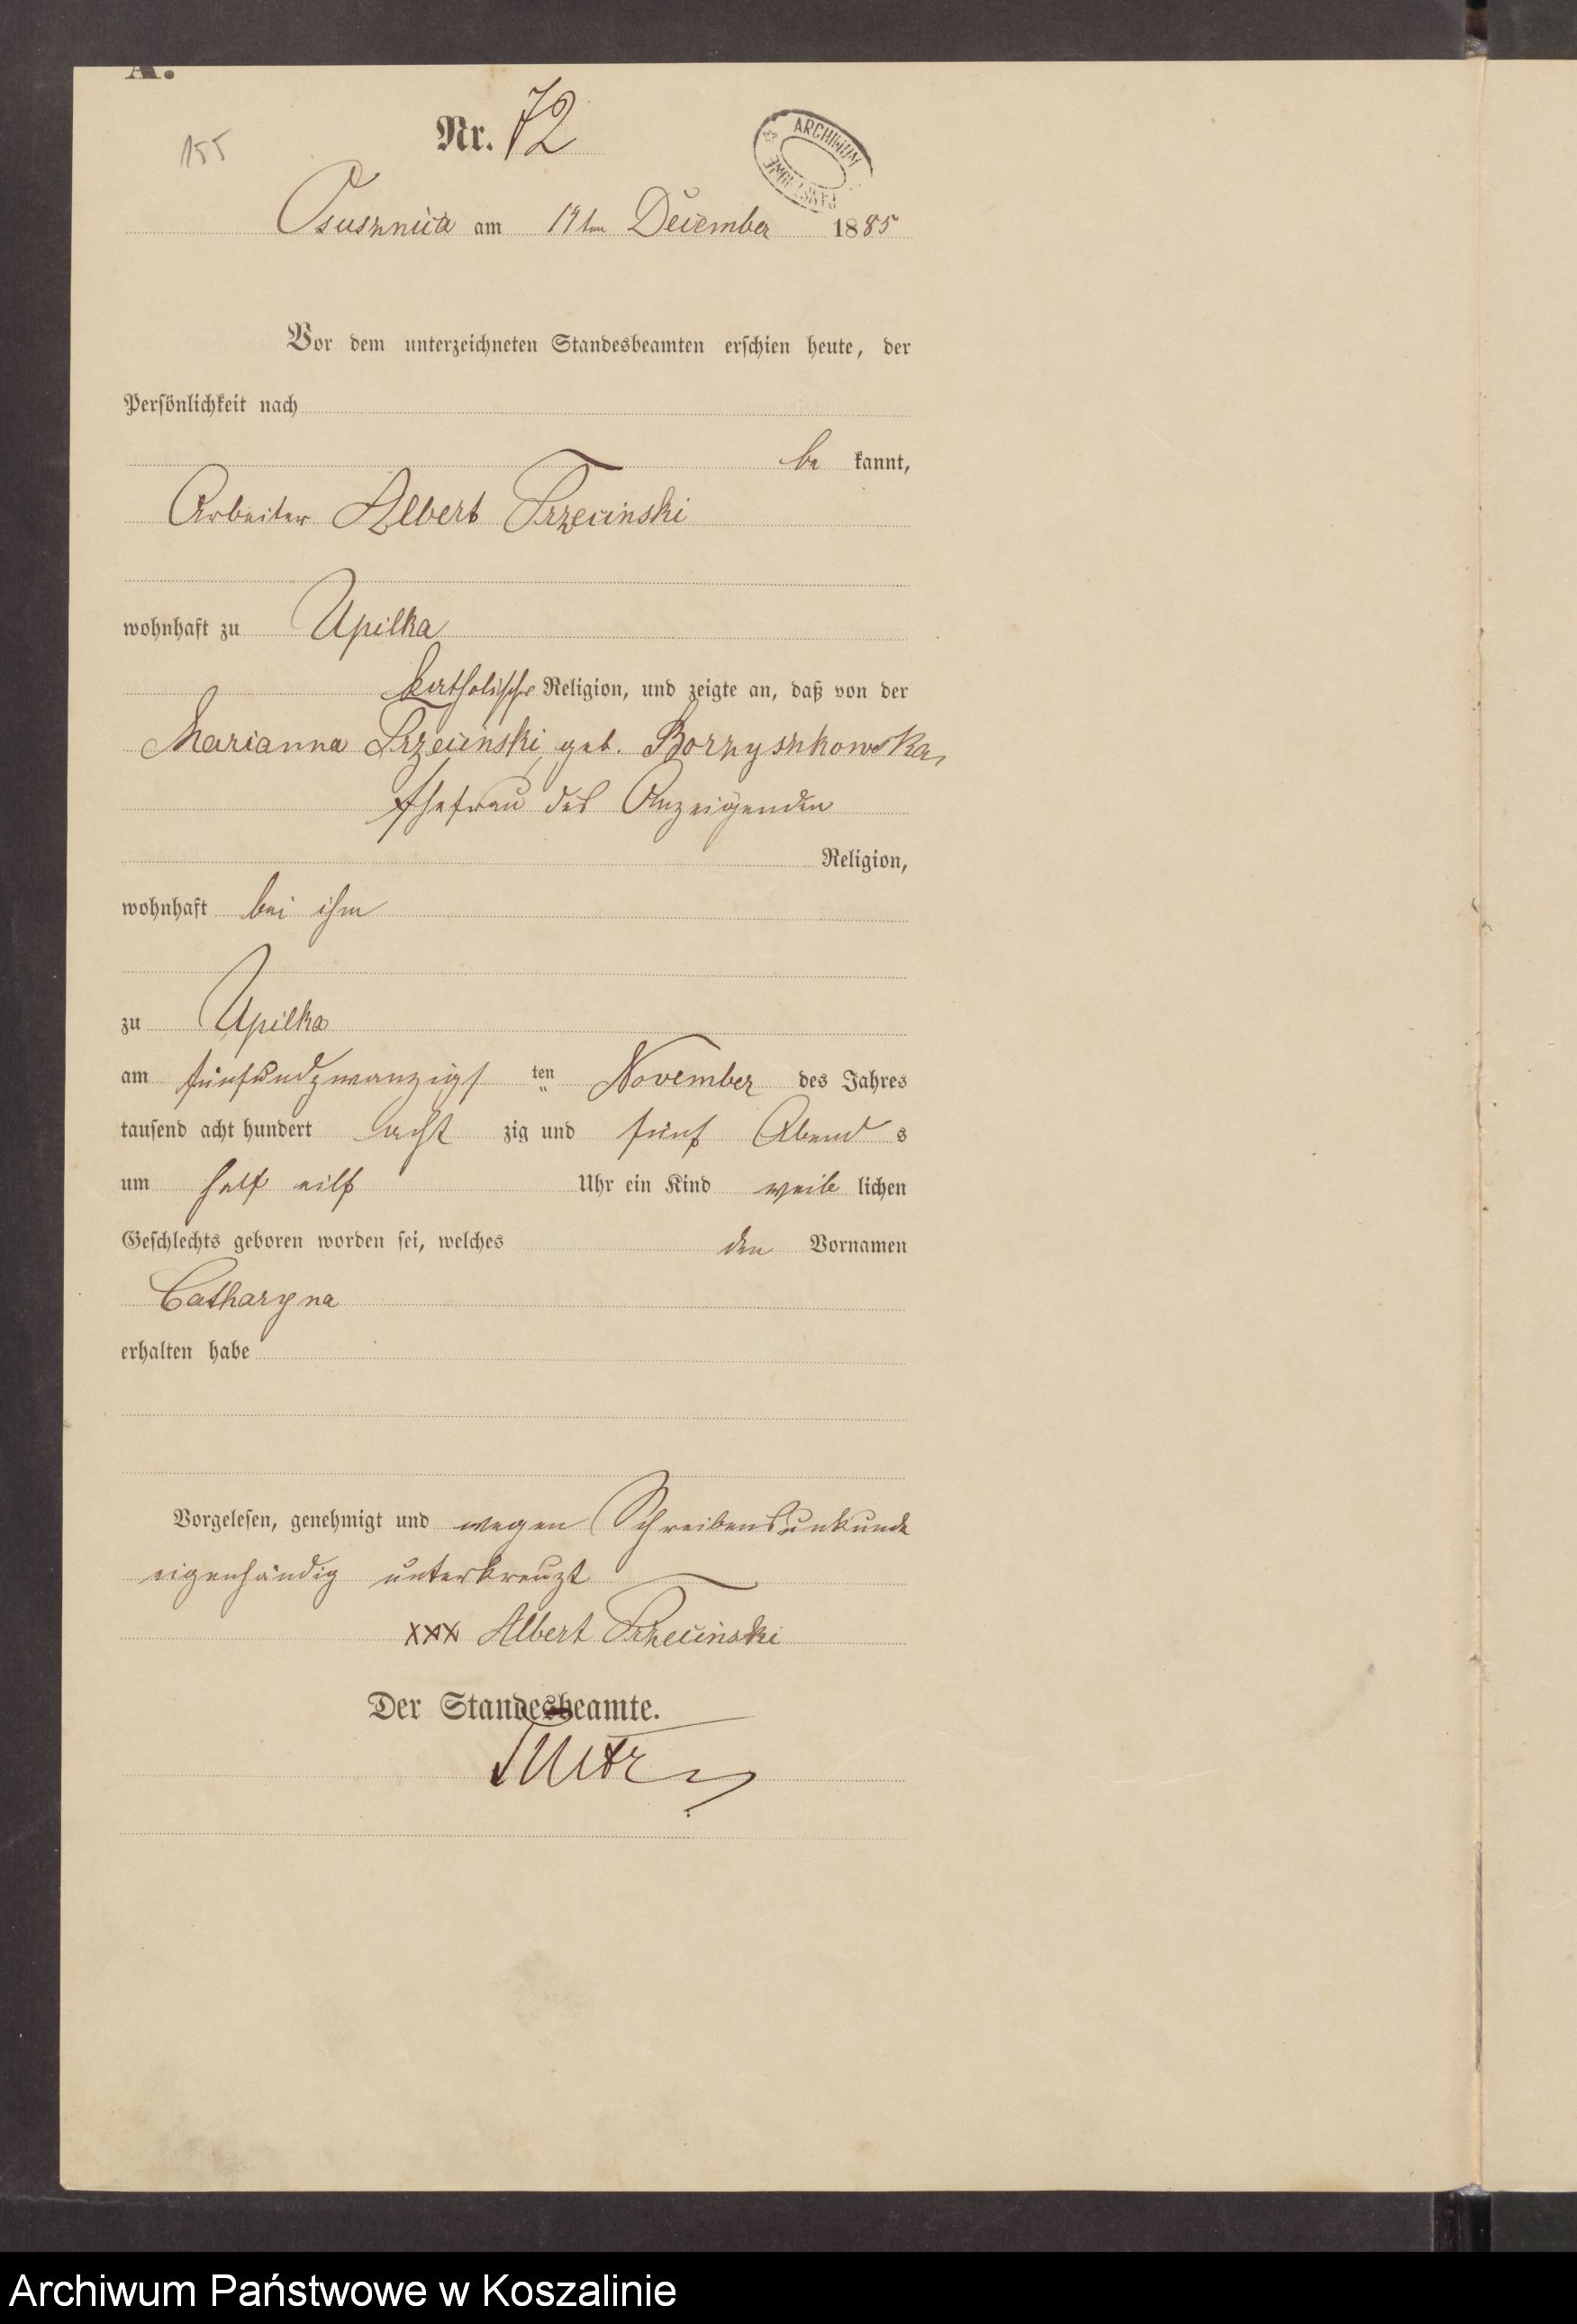 A.
155
Nr. 72
ARCHIWUM
PAŃSTWOWE
Osusznica am ten December 1885
Vor dem unterzeichneten Standesbeamten erschien heute, der
Persönlichkeit nach
be kannt,
Arbeiter Albert Trzecinski
wohnhaft zu Upilka
katholischer Religion, und zeigte an, daß von der
Marianna Trzecinski, geb. Borzyszkowska,
Ehefrau des Anzeigenden
Religion,
wohnhaft bei ihm
zu Upilka
am fünfundzwanzigs ten November des Jahres
tausend acht hundert acht zig und fünf Abend s
um half eilf Uhr ein Kind weib lichen
Geschlechts geboren worden sei, welches den Vornamen
Catharyna
erhalten habe
Vorgelesen, genehmigt und wegen Schreibensunkunde
eigenhändig unterkreuzt
xxx Albert Trzecinski
Der Standesbeamte.
Archiwum Państwowe w Koszalinie